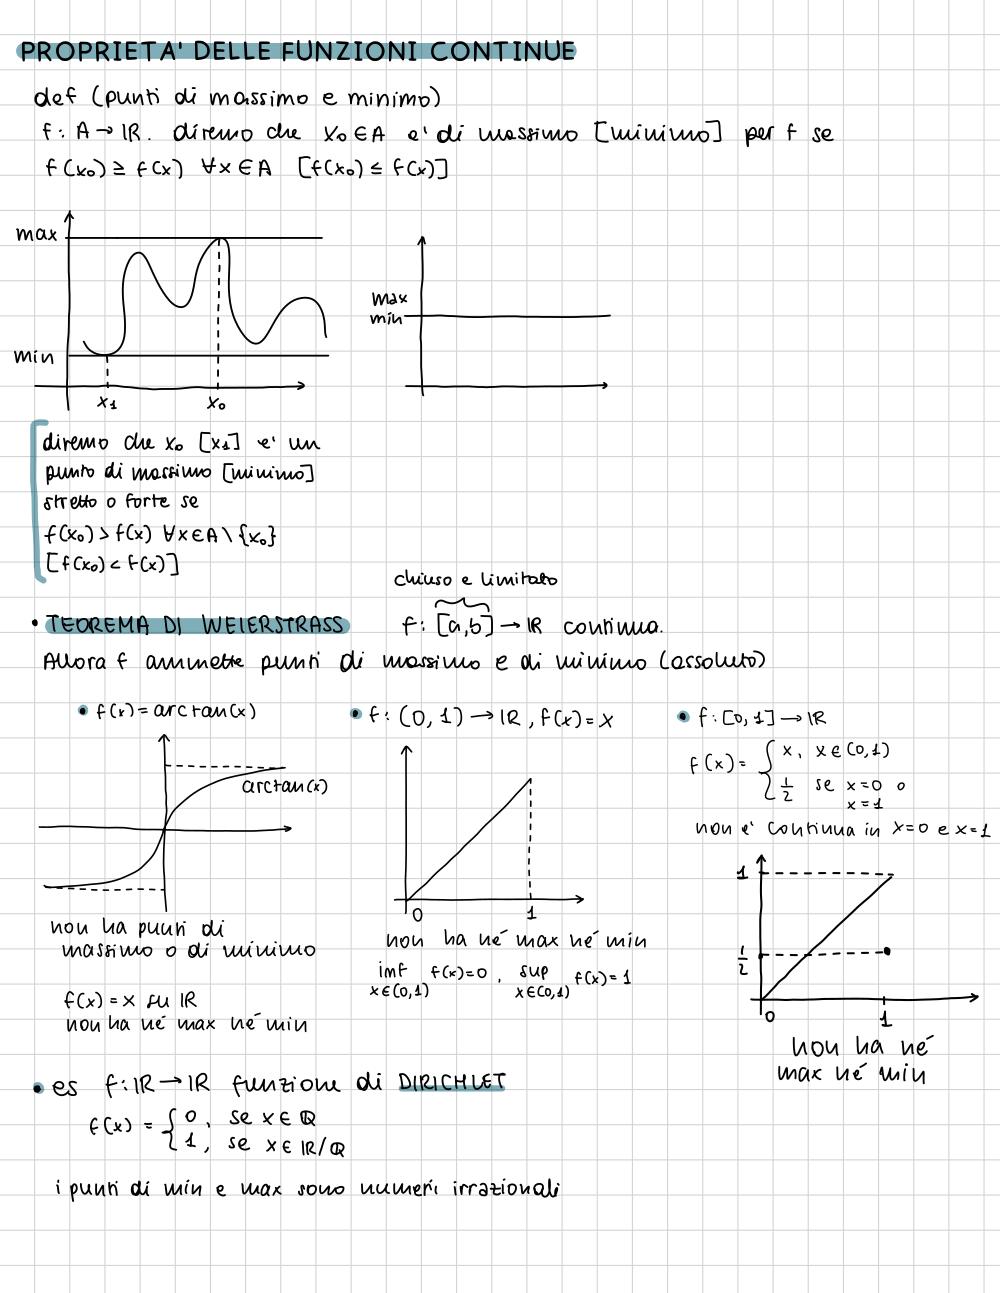 PROPRIETA' DELLE FUNZIONI CONTINUE
def (punti di massimo e minimo)
f: A → IR. diremo che x₀ ∈ A e' di massimo [minimo] per f se
f(x₀) ≥ f(x) ∀x ∈ A [f(x₀) ≤ f(x)]
max
min
x₁ x₀
max
min
diremo che x₀ [x₁] e' un
punto di massimo [minimo]
stretto o forte se
f(x₀) > f(x) ∀x∈A \ {x₀}
[f(x₀) < f(x)]
chiuso e limitato
• TEOREMA DI WEIERSTRASS f: [a,b] → IR continua.
Allora f ammette punti di massimo e di minimo (assoluto)
• f(x) = arctan(x)
arctan(x)
non ha punti di
massimo o di minimo
f(x) = x su IR
non ha né max né min
• f: (0, 1) → IR, f(x) = x
0 1
non ha né max né min
inf f(x)=0 , sup f(x) = 1
x∈(0,1) x∈(0,1)
• f: [0,1] → IR
f(x) = { x, x ∈ (0,1)
1/2 se x=0 o
x=1
non e' continua in x=0 e x=1
1
1/2
0 1
non ha né
max né min
• es f: IR → IR funzione di DIRICHLET
f(x) = { 0, se x ∈ ℚ
1, se x ∈ IR/ℚ
i punti di min e max sono numeri irrazionali